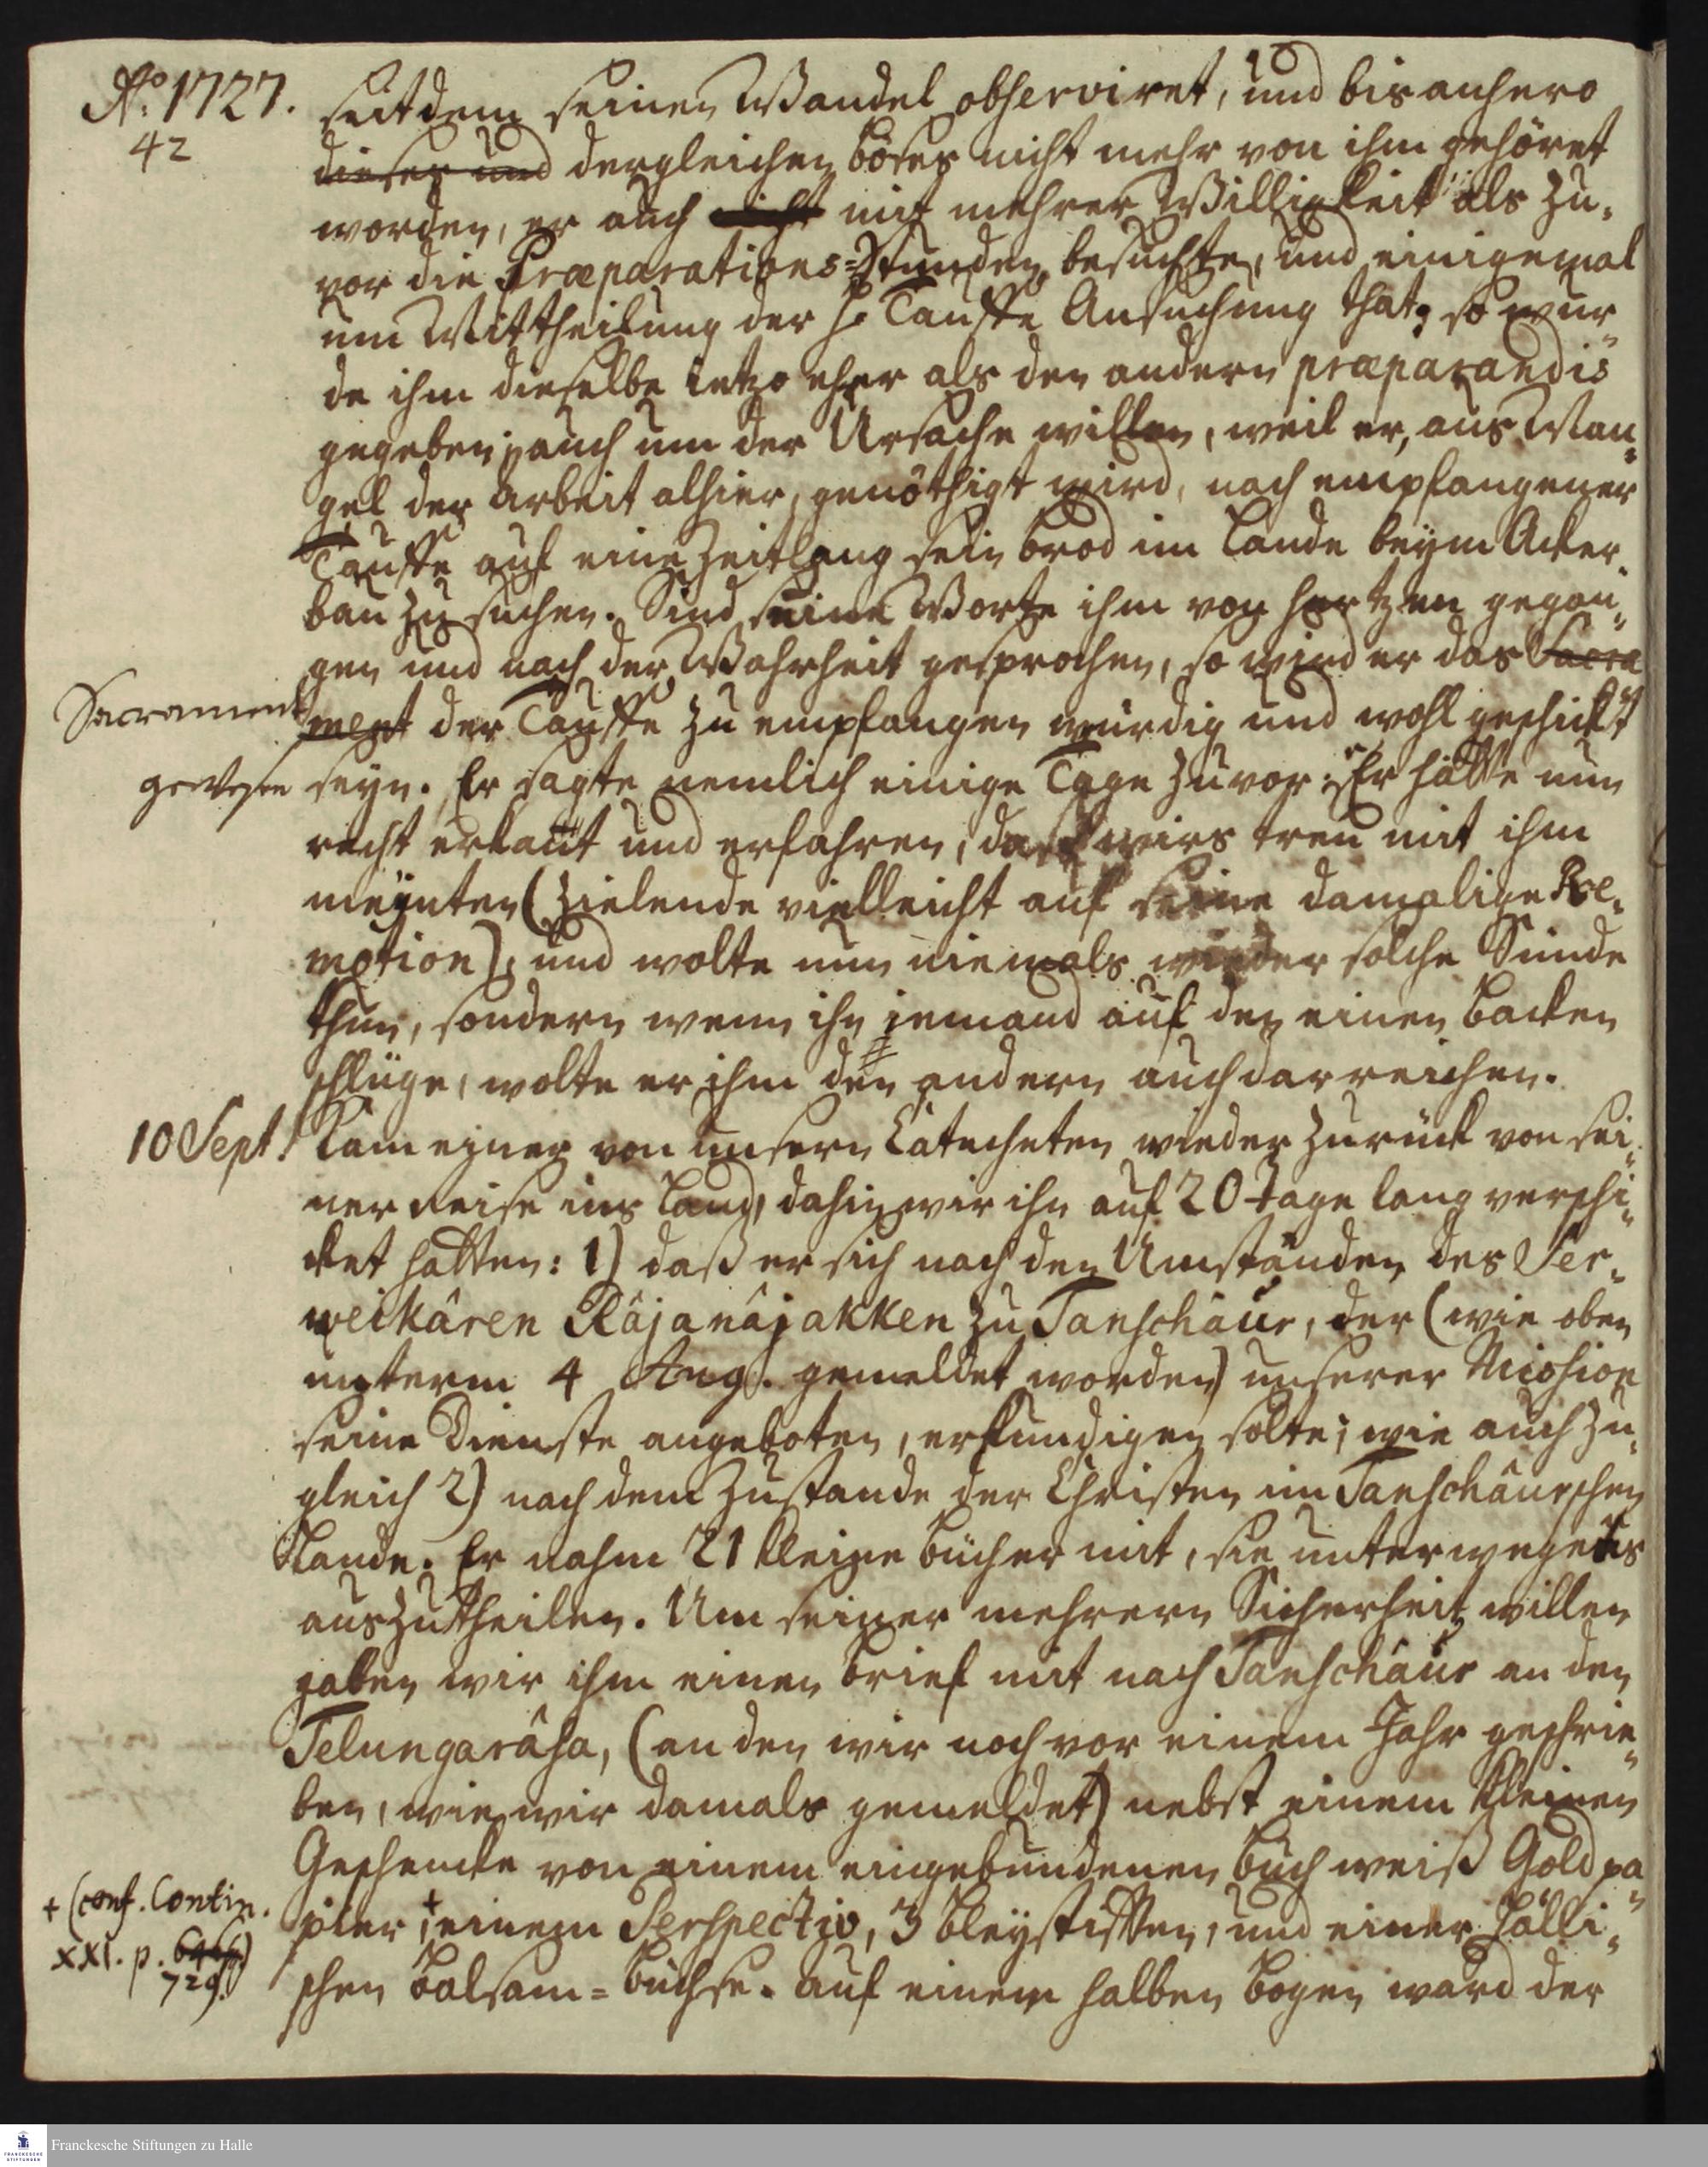 Aº. 1727.
42
seitdem seinen Wandel observiret, und bis anhero
dieses und dergleichen böses nicht mehr von ihm gehöret
worden, er auch nicht mit mehrer Willigkeit als zu-
vor die Præparations-Stunden besuchte, und einigemal
um Mittheilung der h. Tauffe Ansuchung that; so wur-
de ihm dieselbe ietzo eher als den andern præparandis
gegeben; auch um der Ursache willen, weil er, aus Man-
gel der Arbeit alhier, genöthigt wird, nach empfangener
Tauffe auf eine Zeitlang sein Brod im Lande beym Acker-
bau zu suchen. Sind seine Worte ihm von Hertzen gegan-
gen und nach der Wahrheit gesprochen, so wird er das Sacra
Sacrament
ment der Tauffe zu empfangen würdig und wohl geschickt
gewesen
seyn. Er sagte nemlich einige Tage zuvor: Er hätte nun
recht erkant und erfahren, daß wirs treu mit ihm
meynten (zielende vielleicht auf seine damalige Re-
motion), und wolte nun niemals wieder solche Sünde
thun, sondern wenn ihn iemand auf den einen Backen
schlüge, wolte er ihm den andern auch darreichen.
10 Sept.
Kam einer von unsern Catecheten wieder zurück von sei-
ner Reise ins Land, dahin wir ihn auf 20 Tage lang verschi-
cket hatten: 1) daß er sich nach den Umständen des Ser-
weikâren Râjanâjakken zu Tanschâur, der (wie oben
unterm 4 Aug. gemeldet worden) unserer Mission
seine Dienste angeboten, erkundigen solte; wie auch zu-
gleich 2) nach dem Zustande der Christen im Tanschâurschen
Lande. Er nahm 21 kleine Bücher mit, sie unterwegens
auszutheilen. Um seiner mehrern Sicherheit willen
gaben wir ihm einen Brief mit nach Tanschâur an den
Telungarâsa, (an den wir noch vor einem Jahr geschrie-
ben, wie wir damals gemeldet) nebst einem kleinen
Geschencke von einem eingebundenen Buch weiß Goldpa-
+ (conf. Contin.
pier,+ einem Perspectiv, 3 Bleystifften, und einer Hälli-
XXI. p. 646)
729.)
schen Balsam-Büchse. Auf einem halben Bogen ward der
Franckesche Stiftungen zu Halle